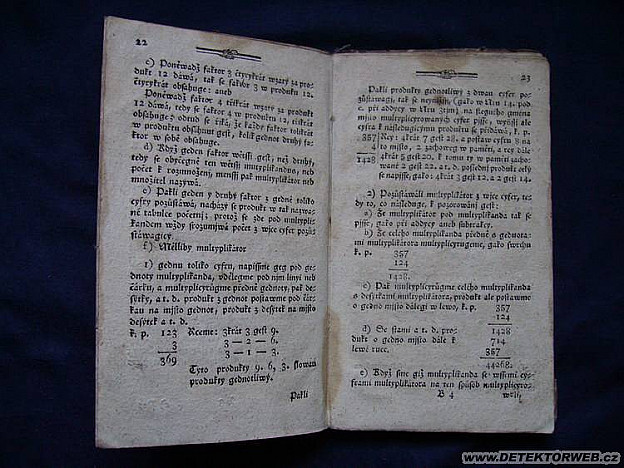 22
c) Poněwadž faktor 3 čtyrykrát wzatý za pro-
dukt 12 dáwá, tak se faktor 3 w produktu 12.
čtyrykrát obsahuge: aneb
Poněwadž faktor 4 třikrát wzatý za produkt
12 dáwá, tedy se faktor 4 w produktu 12, třikrát
obsahuge; odtud se říká: že každý faktor tolikrát
w produktu obsáhnut gest, kolik gednot druhý fa-
ktor w sobě obsahuge.
d) Když geden faktor wětssí gest, než druhý,
tedy se obyčegně ten wětssí multyplikandus, neb
počet k rozmnožení, menssí pak multyplikátor neb
množitel nazýwá.
e) Paklí geden y druhý faktor z gedné toliko
cyfry pozůstáwá, nachází se produkt w tak nazwa-
né tabulce početní; protož se zde pod multypli-
kandem wždy srozumjwá počet z wjce cyfer pozů-
stáwagjcý.
f) Měliby multyplikátor
1) gednu toliko cyfru, napissme geg pod ge-
dnoty multyplikanda, vdělegme pod njm linyi neb
čárku, a multyplicyrůgme předně gednoty, pak de-
sýtky, a t. d. produkt z gednot postawme pod čár-
kau na mjsto gednot, produkt z desýtek na mjsto
desýtek a t. d.
k. p. 123 Rceme: 3krát 3 gest 9.
3 3 — 2 — 6.
369 3 — 1 — 3.
Tyto produkty 9. 6, 3. slowau
produkty gednotliwý.
Paklí
23
Paklí produkty gednotliwý z dwau cyfer po-
zůstáwagj, tak se (gako w §ku 14. pod
c. při addycy w §ku 3tjm) na slegného gména
mjsto multyplicyrowaných cyfer pjsse, wyšssí ale
cyfra k následugjcýmu produktu se přidáwá, k. p.
357 Rcy: 4krát 7 gest 28. a postaw cyfru 8 na
4 to mjsto, 2 zachoweg w paměti, a rcy dále
1428 4krát 5 gest 20, k tomu ty w paměti zacho-
wané 2 gest 22. at d. poslední produkt celý
se napjsse, gako: 4krát 3 gest 12. a 2 gest 14.
2) Pozůstáwáli multyplikátor z wjce cyfer, te-
dy to, co následuge, k pozorowání gest:
a) Ze multyplikátor pod multyplikanda tak se
pjsse, gako při addycy aneb subtrakcy.
b) Ze celého multyplikanda předně s gednota-
mi multyplikátora multyplicyrugeme, gako swrchu
k. p. 357
124
1428.
c) Pak multyplicyrůgme celého multyplikanda
s desýtkami multyplikátora, produkt ale postawme
o gedno mjsto dálegi w lewo, k. p. 357
124
d) Se stami a t. d. pro- 1428
dukt o gedno mjsto dále k 714
lewé ruce. 357
44268.
e) Když sme giž multyplikanda se wssemi cy-
frami multyplikátora na ten spůsob multyplicyro-
B 4
www.DETEKTORWEB.cz